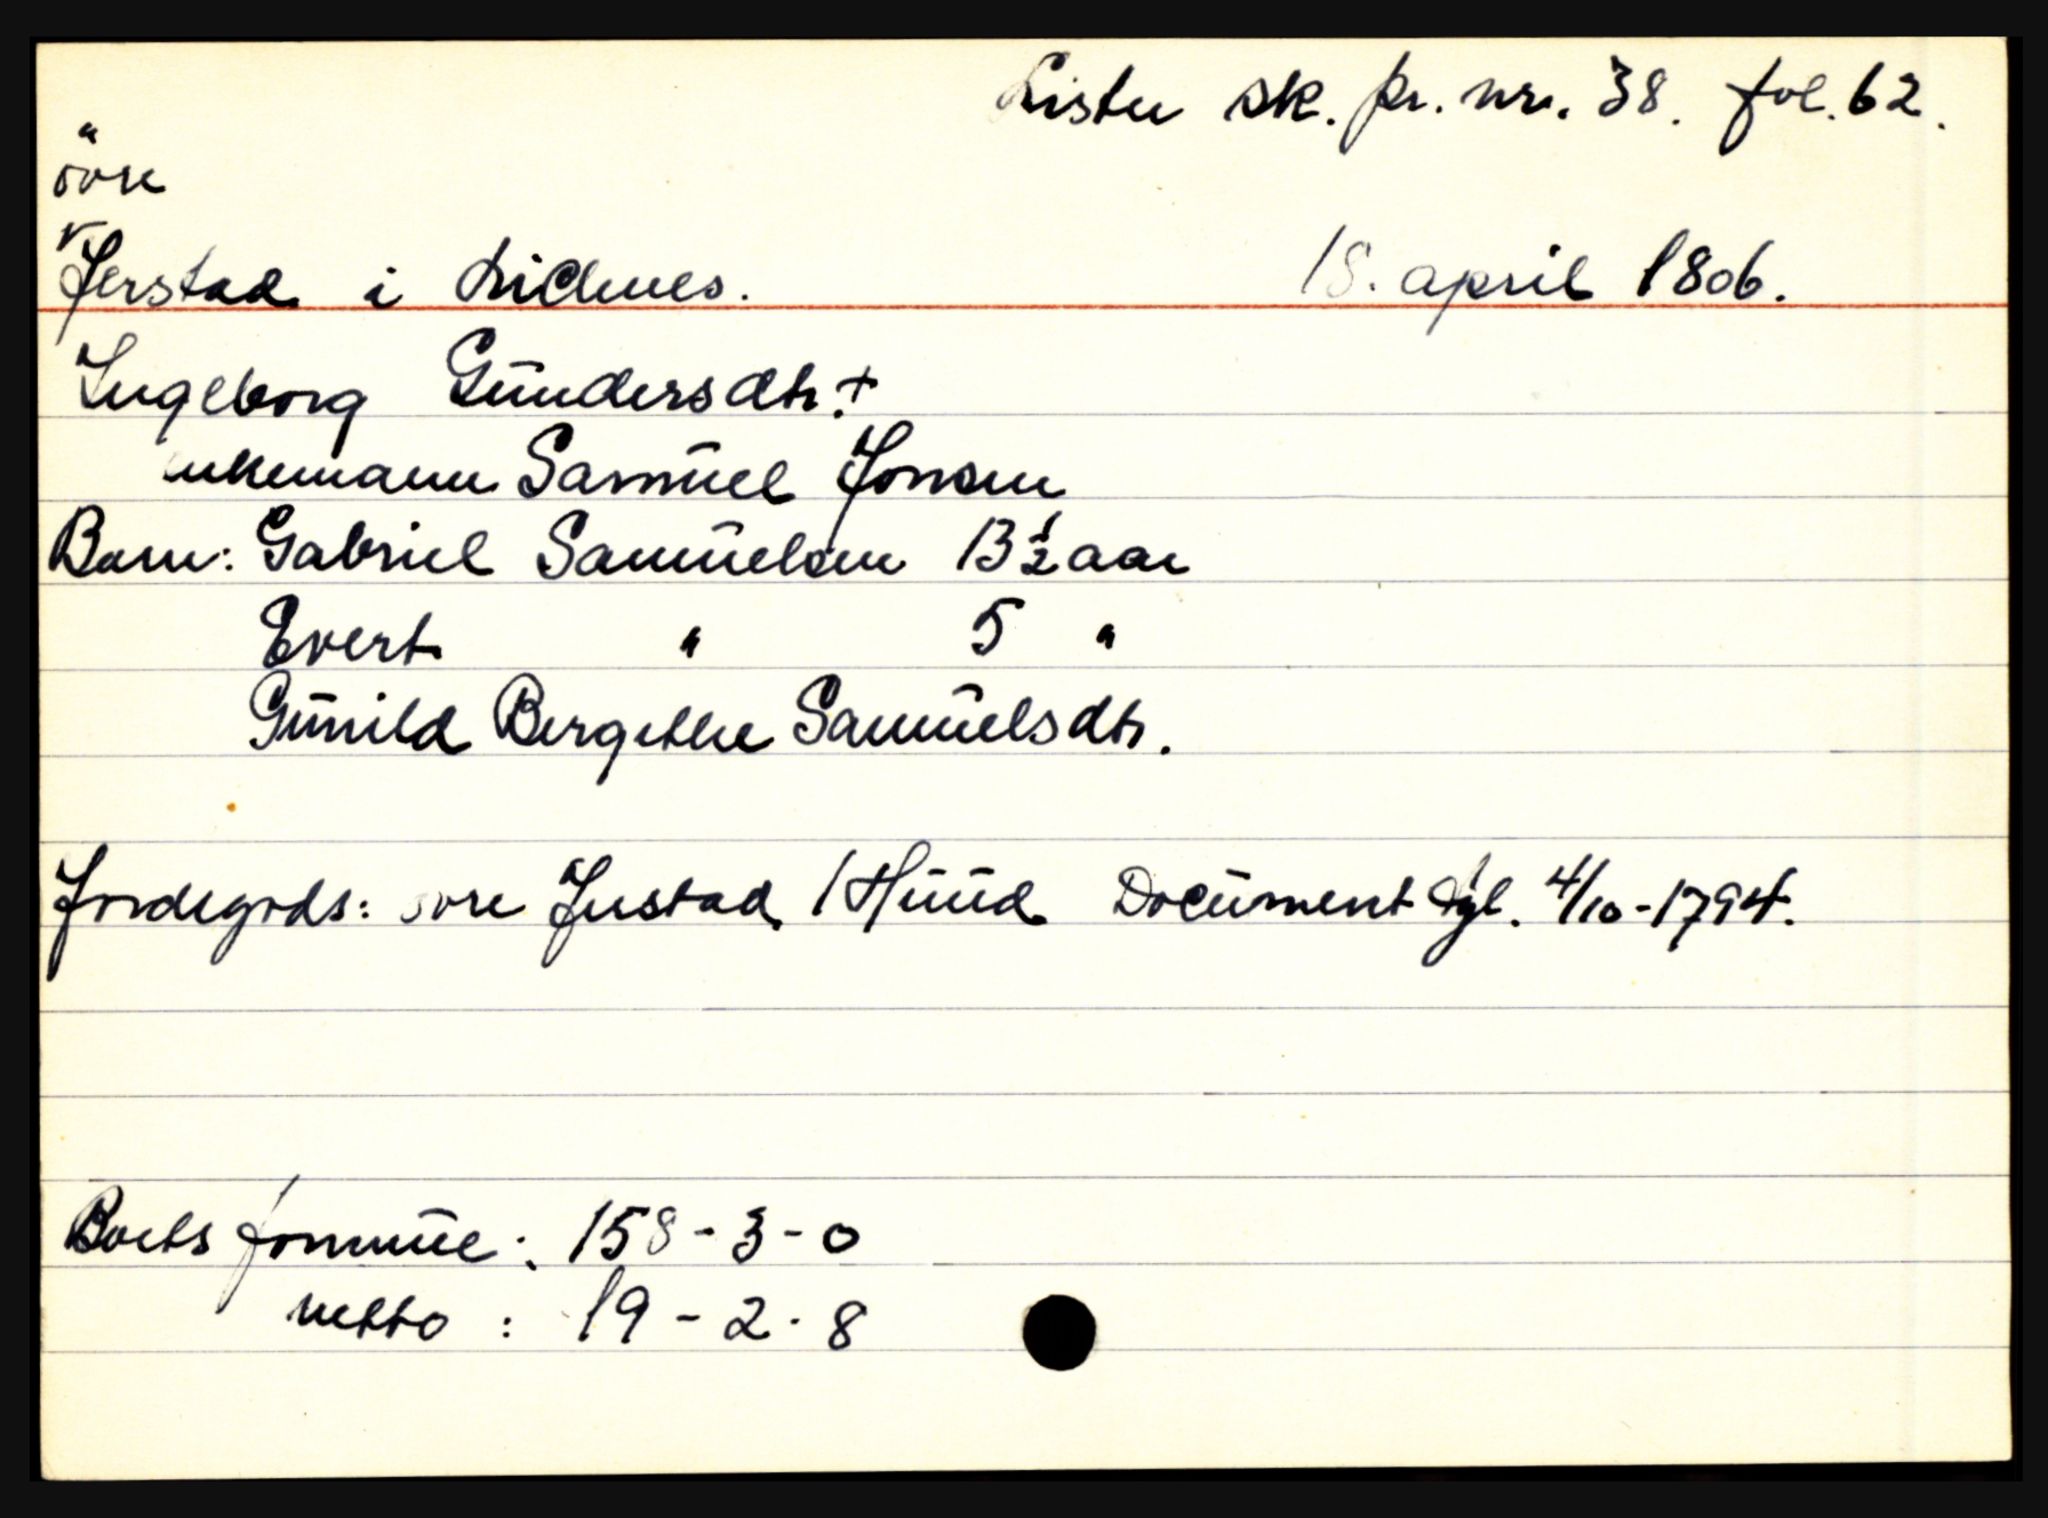 Lister sk. pr. nr. 38. fol. 62.
övre
Jerstad i Lidnes. 18. april 1806.
Ingeborg Gundersdtr. +
enkemann Samuel Jonsen
Barn: Gabriel Samuelsen 13 1/2 aar
Evert " 5 "
Gunild Bergethe Samuelsdtr.
Jordegods: övre Jerstad 1 Huud Document tgl. 4/10-1794.
Boets formue: 158-3-0
netto: 19-2-8